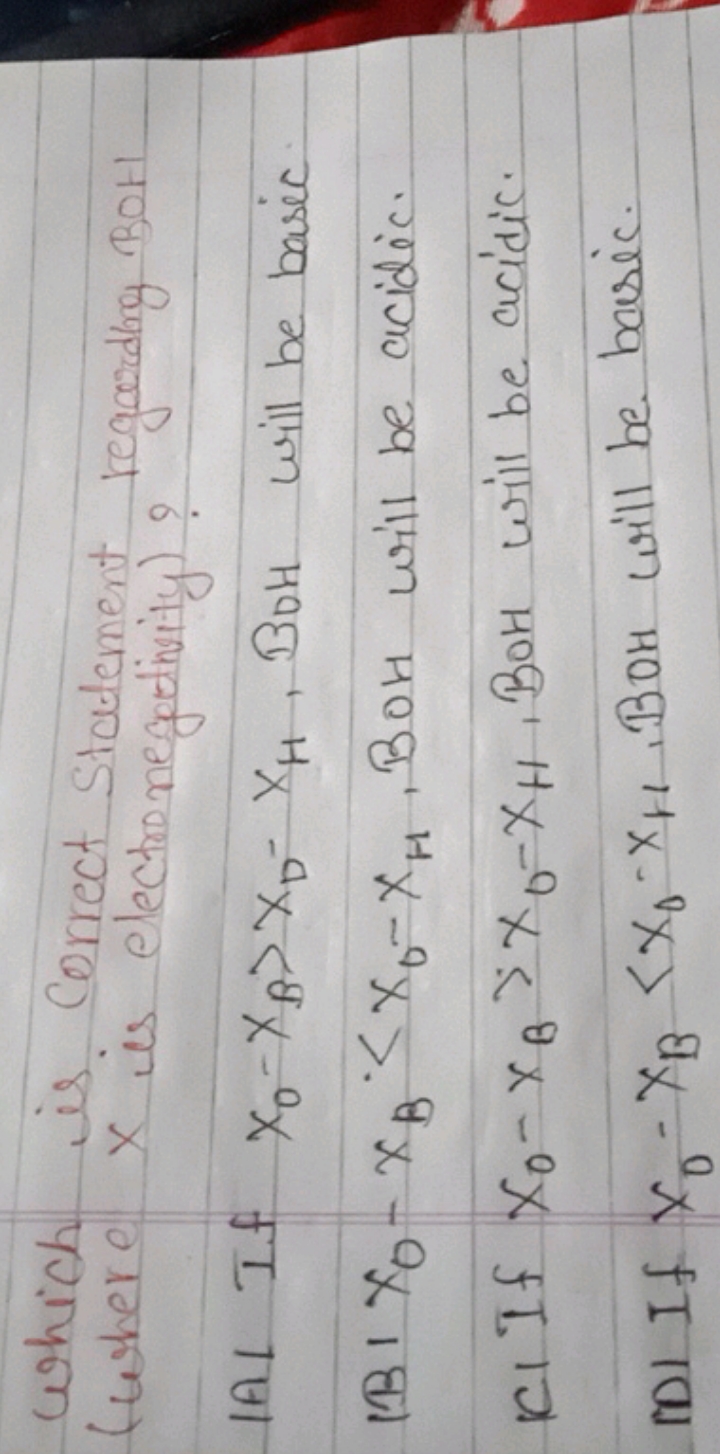 which is correct statement regarding BOH
(where x is electronegativity) ?
(A) If X₀-X_B > X₀-X_H, BOH will be basic.
(B) X₀-X_B < X₀-X_H, BOH will be acidic.
(C) If X₀-X_B > X₀-X_H, BOH will be acidic.
(D) If X₀-X_B < X₀-X_H, BOH will be basic.